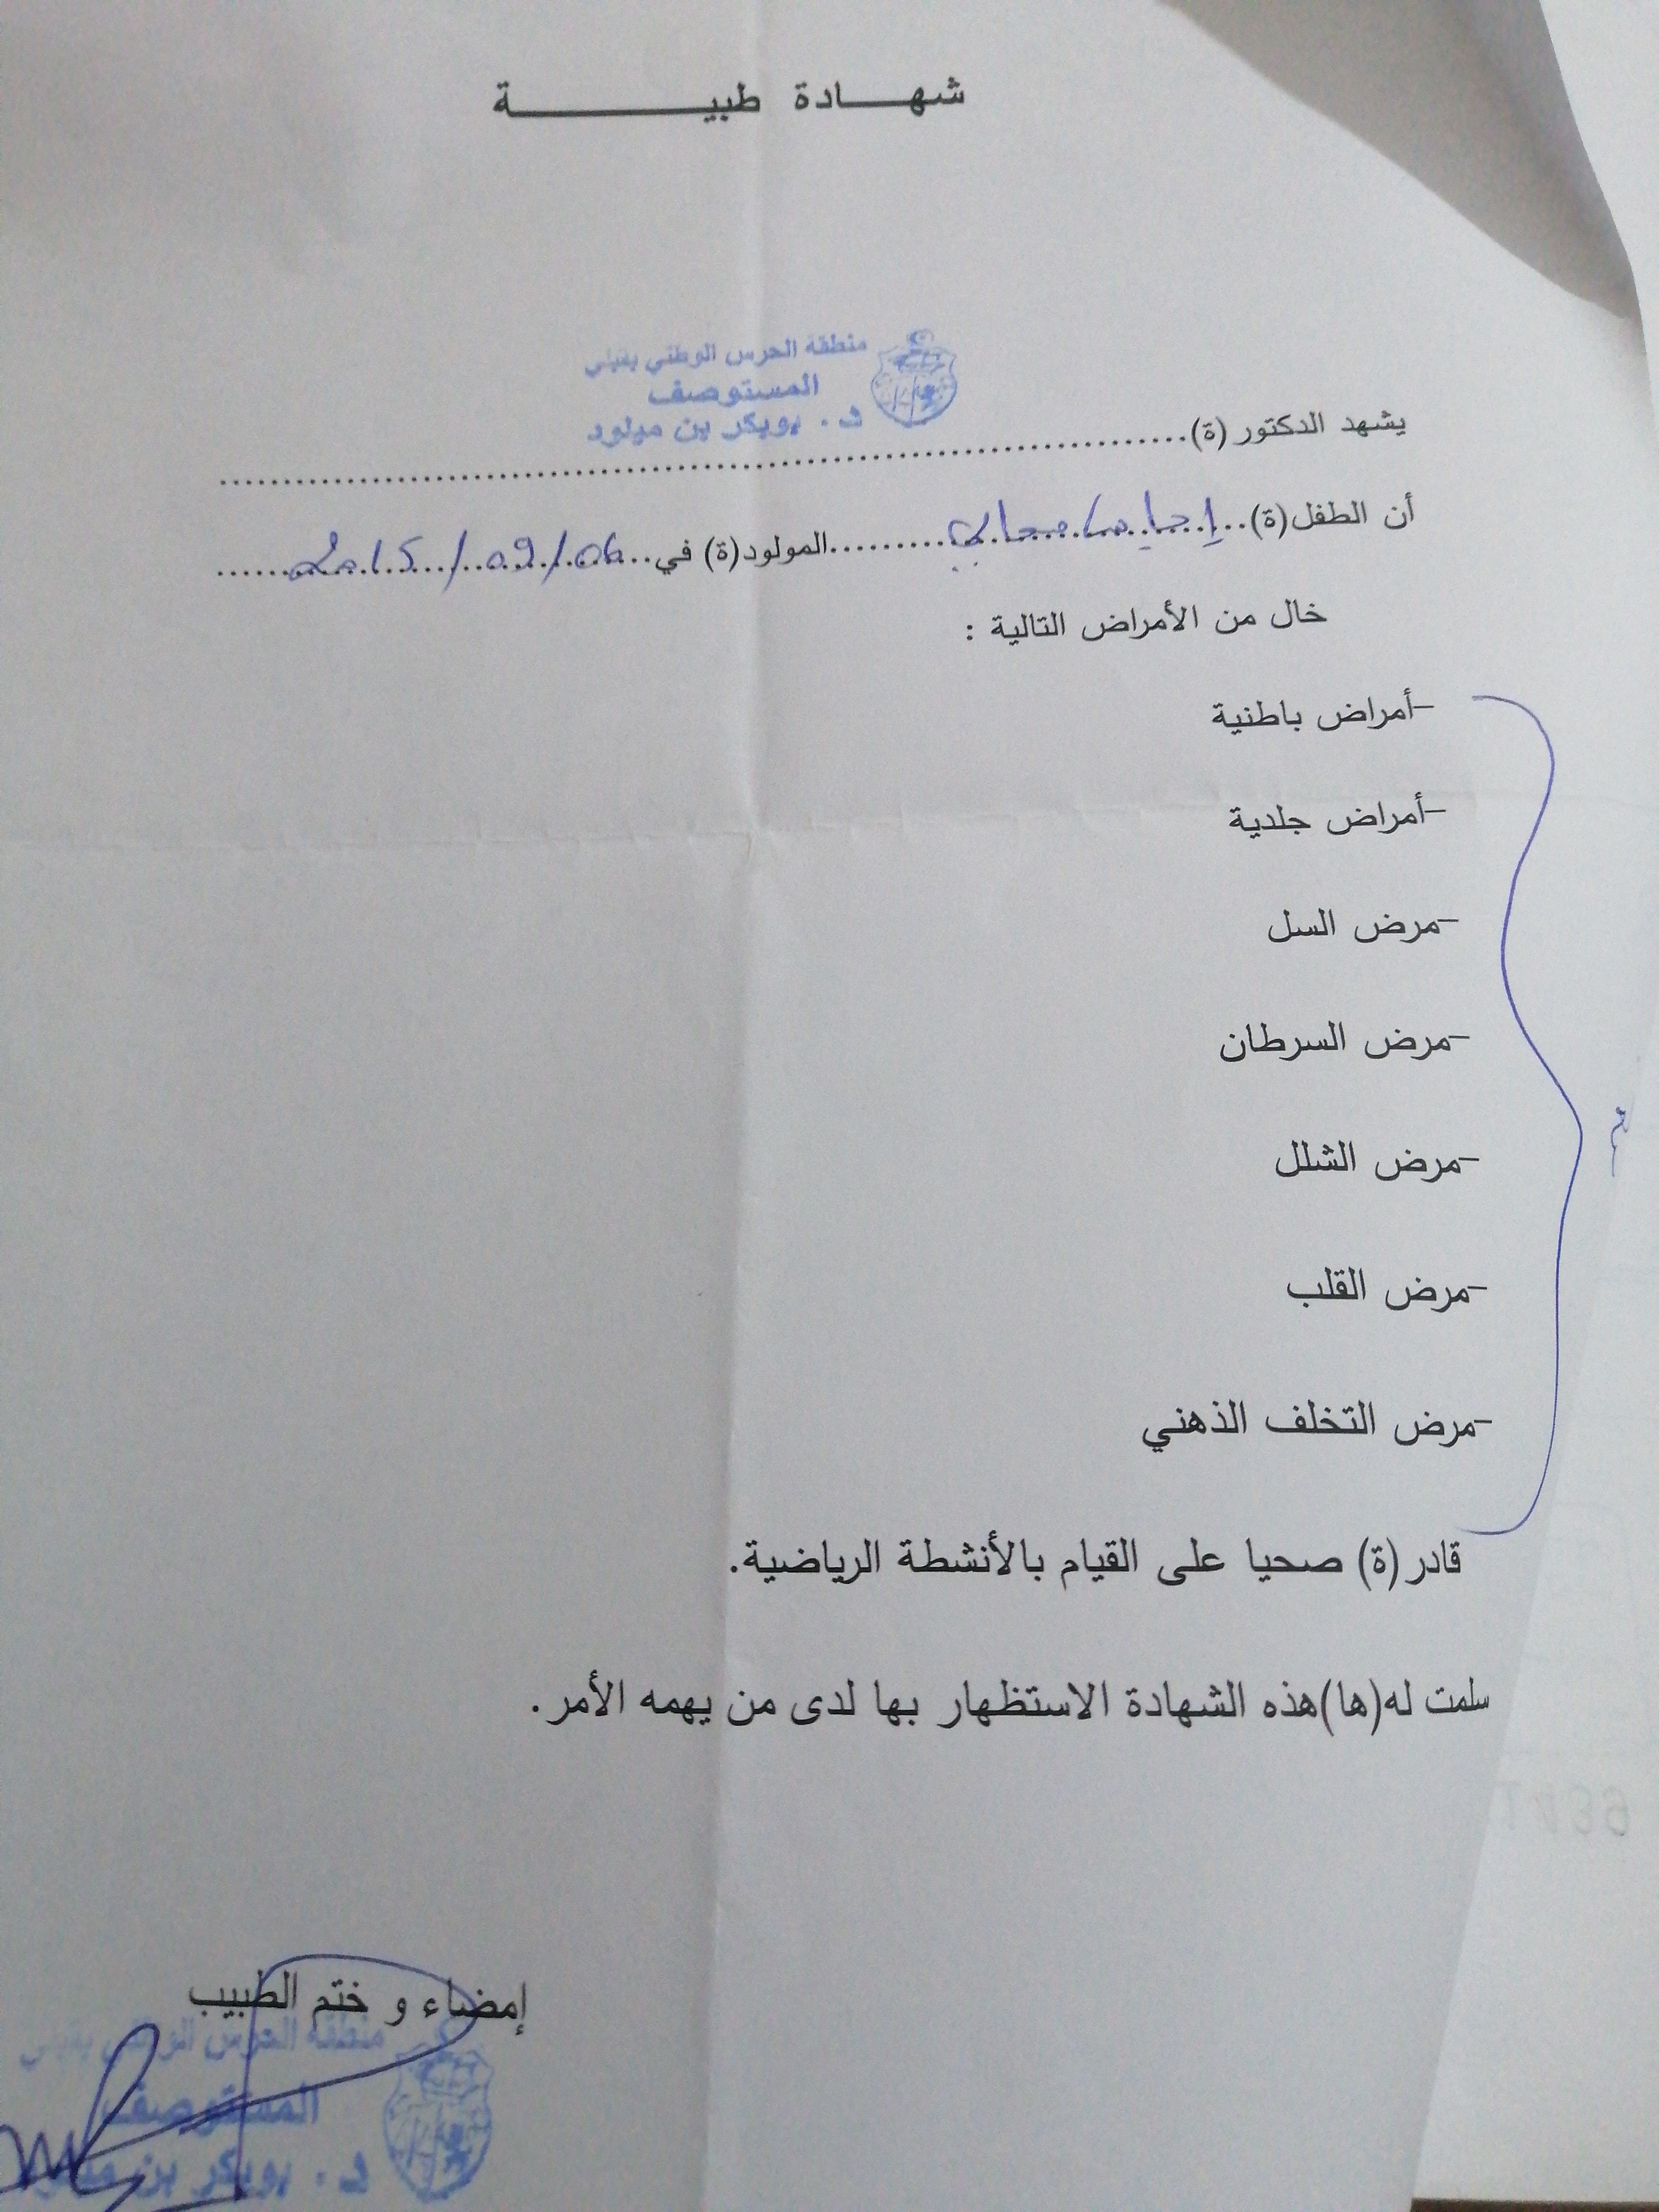 شهادة طبية
منطقة الحرس الوطني بقبلي
المستوصف
د. بوبكر بن ميلود
يشهد الدكتور (ة)
أن الطفل(ة) المولود(ة) في 06/09/2015
خال من الأمراض التالية :
-أمراض باطنية
-أمراض جلدية
-مرض السل
-مرض السرطان
-مرض الشلل
-مرض القلب
-مرض التخلف الذهني
قادر(ة) صحيا على القيام بالأنشطة الرياضية.
سلمت له(ها)هذه الشهادة الاستظهار بها لدى من يهمه الأمر.
إمضاء و ختم الطبيب
منطقة الحرس الوطني بقبلي
المستوصف
د. بوبكر بن ميلود